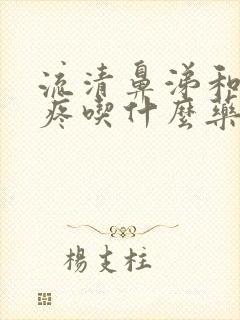 流清鼻涕和
疼喫什麼藥
楊支柱